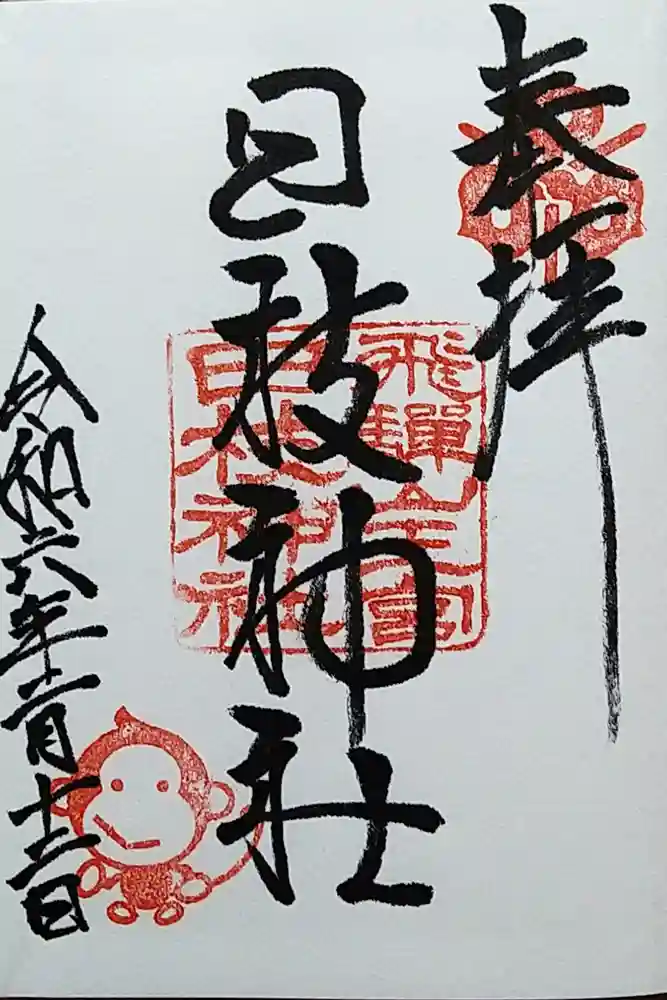 奉拝
飛騨山王宮
日枝神社
日枝神社
令和六年二月十二日